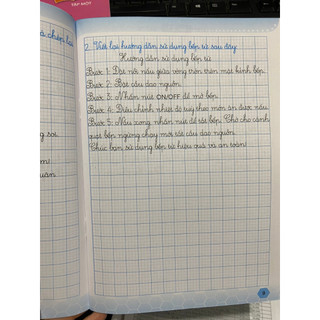 TẬP MỘT
à chép lại
2. Viết lại hướng dẫn sử dụng bếp từ sau đây:
Hướng dẫn sử dụng bếp từ
Bước 1: Đặt nồi nấu giữa vòng tròn trên mặt kính bếp.
Bước 2: Bật cầu dao nguồn.
Bước 3: Nhấn nút ON/OFF để mở bếp.
Bước 4: Điều chỉnh nhiệt độ tuỳ theo món ăn được nấu.
Bước 5: Nấu xong, nhấn nút để tắt bếp. Chờ cho cánh
quạt bếp ngừng chạy mới tắt cầu dao nguồn.
Chúc bạn sử dụng bếp từ hiệu quả và an toàn!